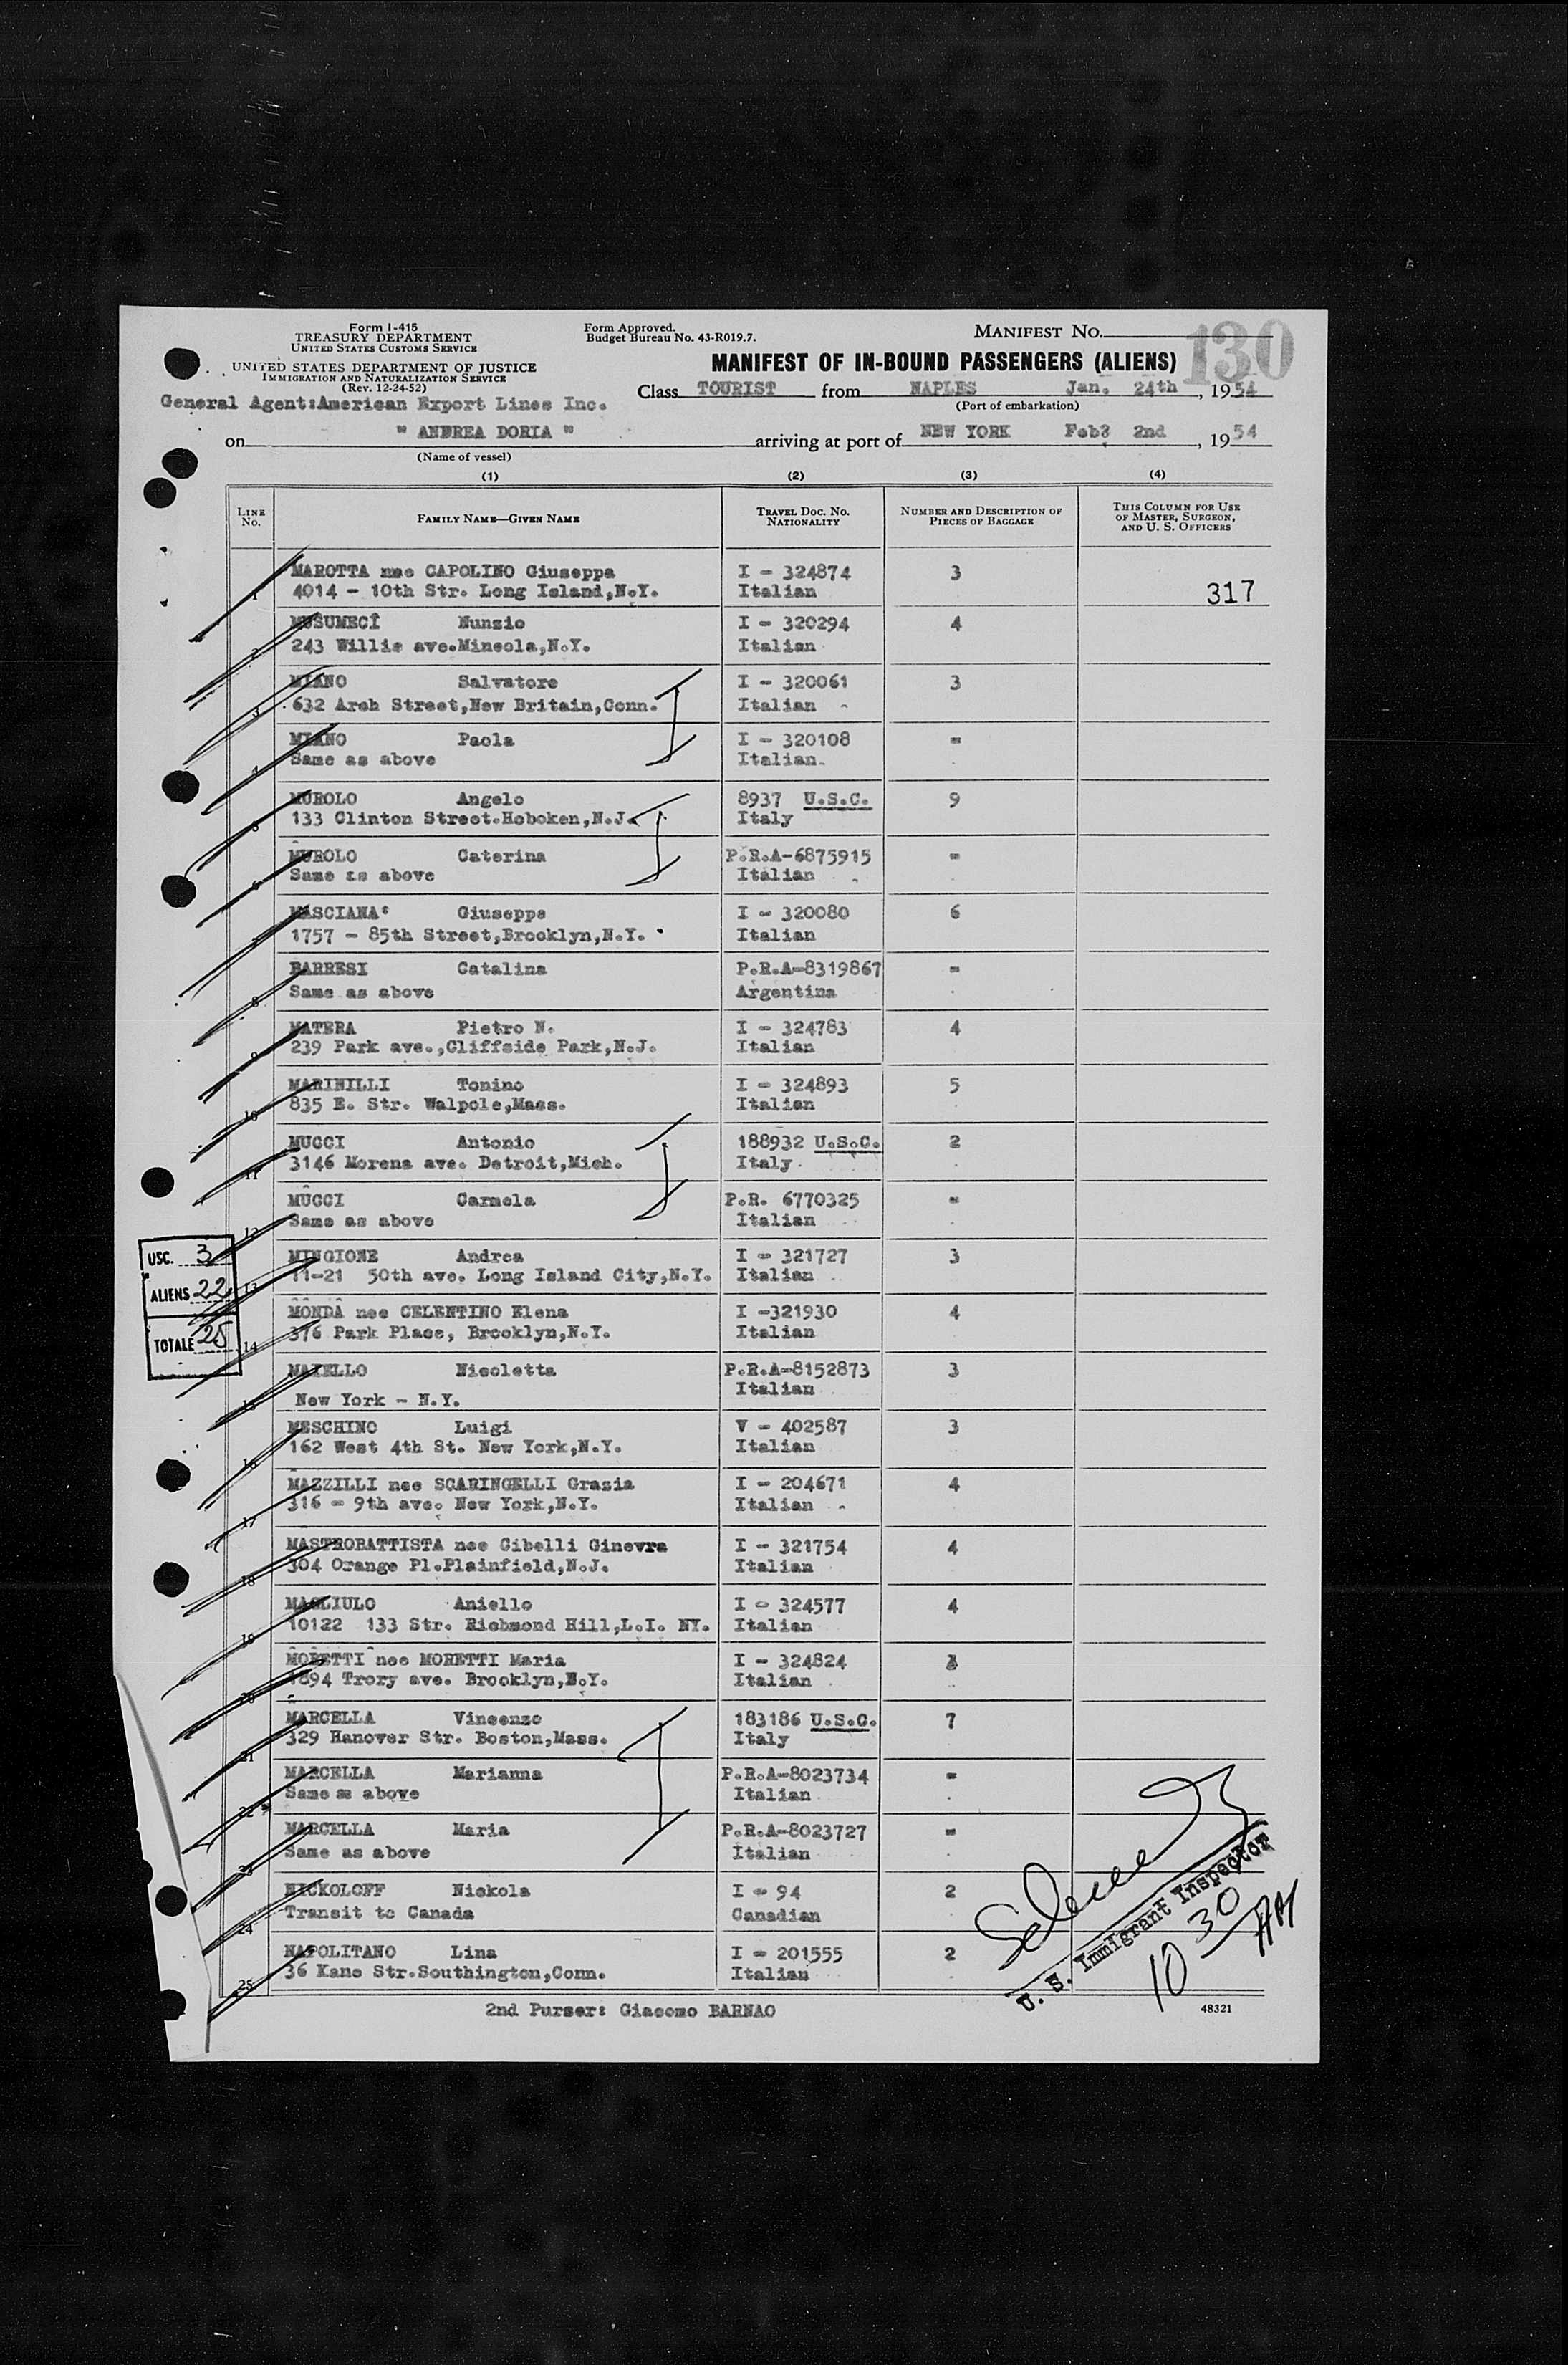 Form I-415
TREASURY DEPARTMENT
UNITED STATES CUSTOMS SERVICE
UNITED STATES DEPARTMENT OF JUSTICE
IMMIGRATION AND NATURALIZATION SERVICE
(Rev. 12-24-52)
Form Approved.
Budget Bureau No. 43-R019.7.
MANIFEST No.
130
MANIFEST OF IN-BOUND PASSENGERS (ALIENS)
Class TOURIST from NAPLES Jan. 24th, 1954
(Port of embarkation)
General Agent:American Export Lines Inc.
on " ANDREA DORIA " arriving at port of NEW YORK Feb 2nd, 1954
(Name of vessel)
(1) (2) (3) (4)
LINE No. FAMILY NAME—GIVEN NAME TRAVEL DOC. NO. NATIONALITY NUMBER AND DESCRIPTION OF PIECES OF BAGGAGE THIS COLUMN FOR USE OF MASTER, SURGEON, AND U. S. OFFICERS
1 MAROTTA nee CAPOLINO Giuseppa I - 324874 3
4014 - 10th Str. Long Island,N.Y. Italian 317
2 MUSUMECI Nunzio I - 320294 4
243 Willis ave.Mineola,N.Y. Italian
3 MIANO Salvatore I - 320061 3
632 Arch Street,New Britain,Conn. Italian
4 MIANO Paola I - 320108 -
Same as above Italian
5 MUROLO Angelo 8937 U.S.C. 9
133 Clinton Street.Hoboken,N.J. Italy
6 MUROLO Caterina P.R.A-6875915 -
Same as above Italian
7 MASCIANA' Giuseppe I - 320080 6
1757 - 85th Street,Brooklyn,N.Y. Italian
8 BARRESI Catalina P.R.A-8319867 -
Same as above Argentina
9 MATERA Pietro N. I - 324783 4
239 Park ave.,Cliffside Park,N.J. Italian
10 MARINILLI Tonino I - 324893 5
835 E. Str. Walpole,Mass. Italian
11 MUCCI Antonio 188932 U.S.C. 2
3146 Morens ave. Detroit,Mich. Italy
12 MUCCI Carmela P.R. 6770325 -
Same as above Italian
USC. 3
ALIENS 22
TOTALE 25
13 MINGIONE Andrea I - 321727 3
11-21 50th ave. Long Island City,N.Y. Italian
14 MONDA nee CELENTINO Elena I -321930 4
376 Park Place, Brooklyn,N.Y. Italian
15 MAIELLO Nicoletta P.R.A-8152873 3
New York - N.Y. Italian
16 MESCHINO Luigi V - 402587 3
162 West 4th St. New York,N.Y. Italian
17 MAZZILLI nee SCARINGELLI Grazia I - 204671 4
316 - 9th ave. New York,N.Y. Italian
18 MASTROBATTISTA nee Cibelli Ginevra I - 321754 4
304 Orange Pl.Plainfield,N.J. Italian
19 MAGLIULO Aniello I - 324577 4
10122 133 Str. Richmond Hill,L.I. NY. Italian
20 MORETTI nee MORETTI Maria I - 324824
1894 Trory ave. Brooklyn,N.Y. Italian
21 MARCELLA Vincenzo 183186 U.S.C. 7
329 Hanover Str. Boston,Mass. Italy
22 MARCELLA Marianna P.R.A-8023734 -
Same as above Italian
23 MARCELLA Maria P.R.A-8023727 -
Same as above Italian
24 NICKOLOFF Nickola I - 94 2
Transit to Canada Canadian
25 NAPOLITANO Lina I - 201555 2
36 Kane Str.Southington,Conn. Italian
U. S. Immigrant Inspector
10 30 AM
2nd Purser: Giacomo BARNAO
48321